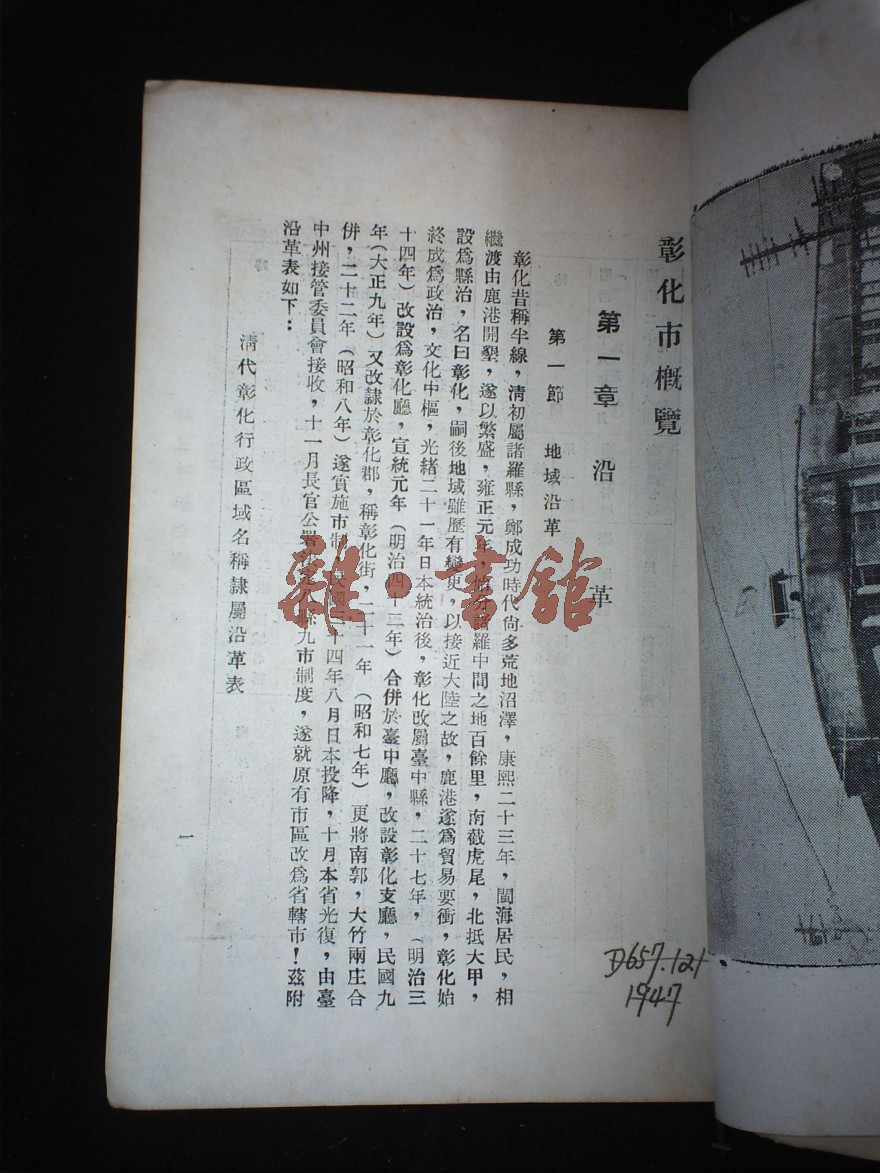 彰化市概覽
第一章 沿革
第一節 地域沿革
彰化昔稱半線，清初屬諸羅縣，鄭成功時代尙多荒地沼澤，康熙二十三年，閩海居民，相
繼渡由鹿港開墾，遂以繁盛，雍正元年，諸羅中間之地百餘里，南截虎尾，北抵大甲，
設爲縣治，名曰彰化，嗣後地域雖歷有變更，以接近大陸之故，鹿港遂爲貿易要衝，彰化始
終成爲政治，文化中樞，光緒二十一年日本統治後，彰化改屬臺中縣，二十七年，（明治三
十四年）改設爲彰化廳，宣統元年（明治四十二年）合併於臺中廳，改設彰化支廳，民國九
年（大正九年）又改隸於彰化郡，稱彰化街，二十一年（昭和七年）更將南郭，大竹兩庄合
併，二十二年（昭和八年）遂實施市制，民國三十四年八月日本投降，十月本省光復，由臺
中州接管委員會接收，十一月長官公署縣九市制度，遂就原有市區改爲省轄市！茲附
沿革表如下：
清代彰化行政區域名稱隸屬沿革表
一
雜·書館
D657.121
1947